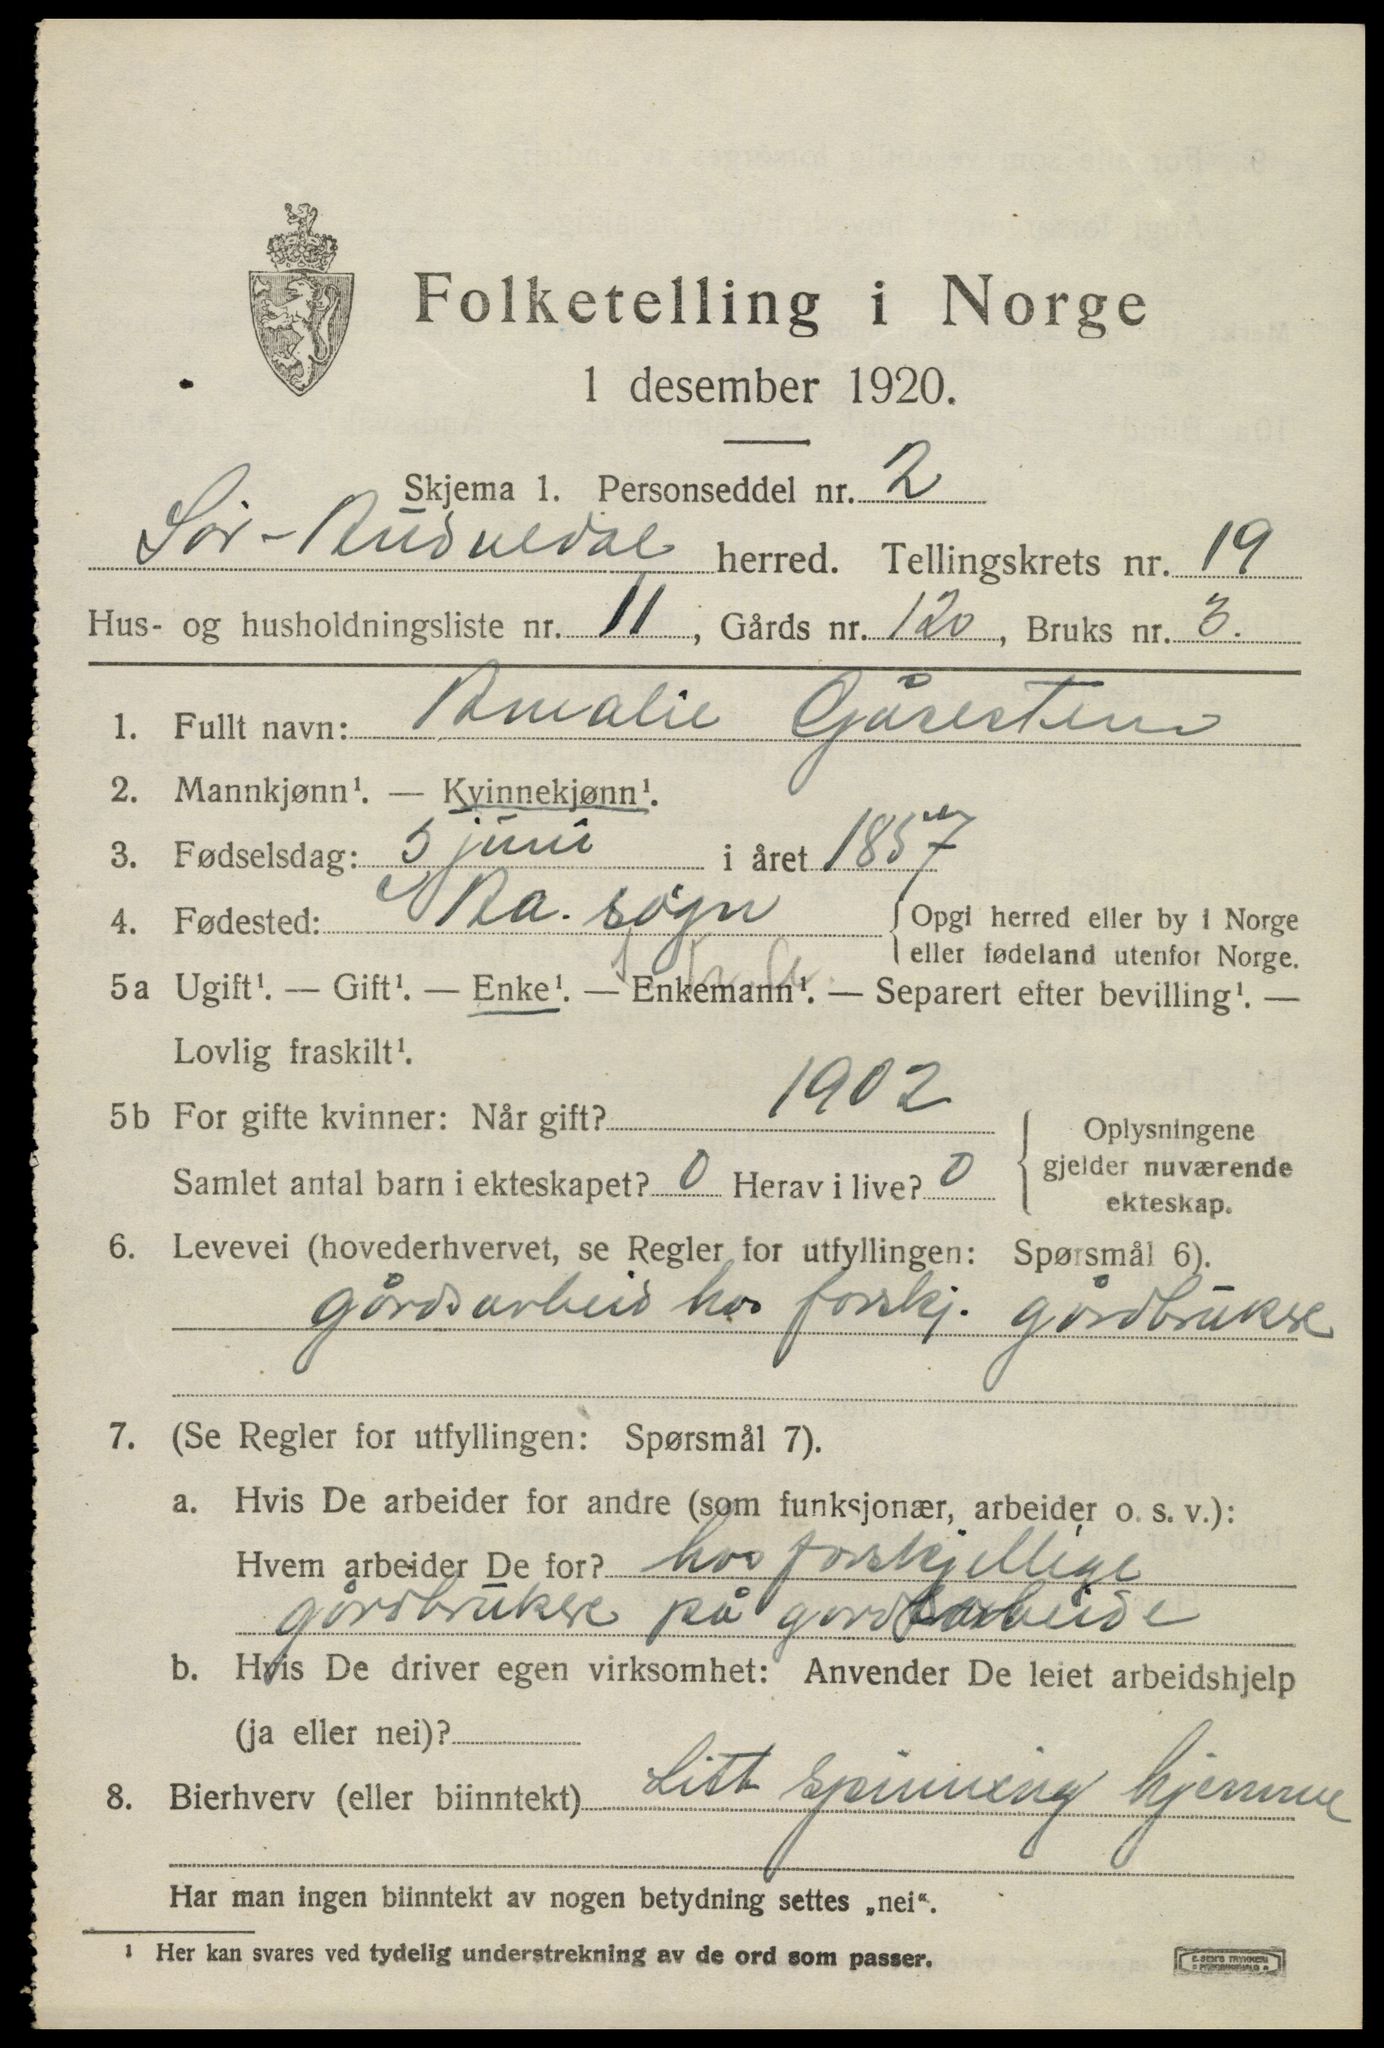 Folketelling i Norge
1 desember 1920.
Skjema 1. Personseddel nr. 2
Sør-Audnedal herred. Tellingskrets nr. 19
Hus- og husholdningsliste nr. 11, Gårds nr. 120, Bruks nr. 3.
1. Fullt navn: Amalie Gåsesten
2. Mannkjønn¹. — Kvinnekjønn¹.
3. Fødselsdag: 5 juni i året 1857
4. Fødested: søgn
Opgi herred eller by i Norge
eller fødeland utenfor Norge.
5a Ugift¹. — Gift¹. — Enke¹. — Enkemann¹. — Separert efter bevilling¹. —
Lovlig fraskilt¹.
5b For gifte kvinner: Når gift? 1902
Samlet antal barn i ekteskapet? 0 Herav i live? 0
Oplysningene
gjelder nuværende
ekteskap.
6. Levevei (hovederhvervet, se Regler for utfyllingen: Spørsmål 6).
gårdsarbeid hos forskj. gårdbrukere
7. (Se Regler for utfyllingen: Spørsmål 7).
a. Hvis De arbeider for andre (som funksjonær, arbeider o. s. v.):
Hvem arbeider De for? hos forskjellige
gårdbrukere på gårdsarbeide
b. Hvis De driver egen virksomhet: Anvender De leiet arbeidshjelp
(ja eller nei)?
8. Bierhverv (eller biinntekt) Litt spinning hjemme
Har man ingen biinntekt av nogen betydning settes „nei“.
¹ Her kan svares ved tydelig understrekning av de ord som passer.